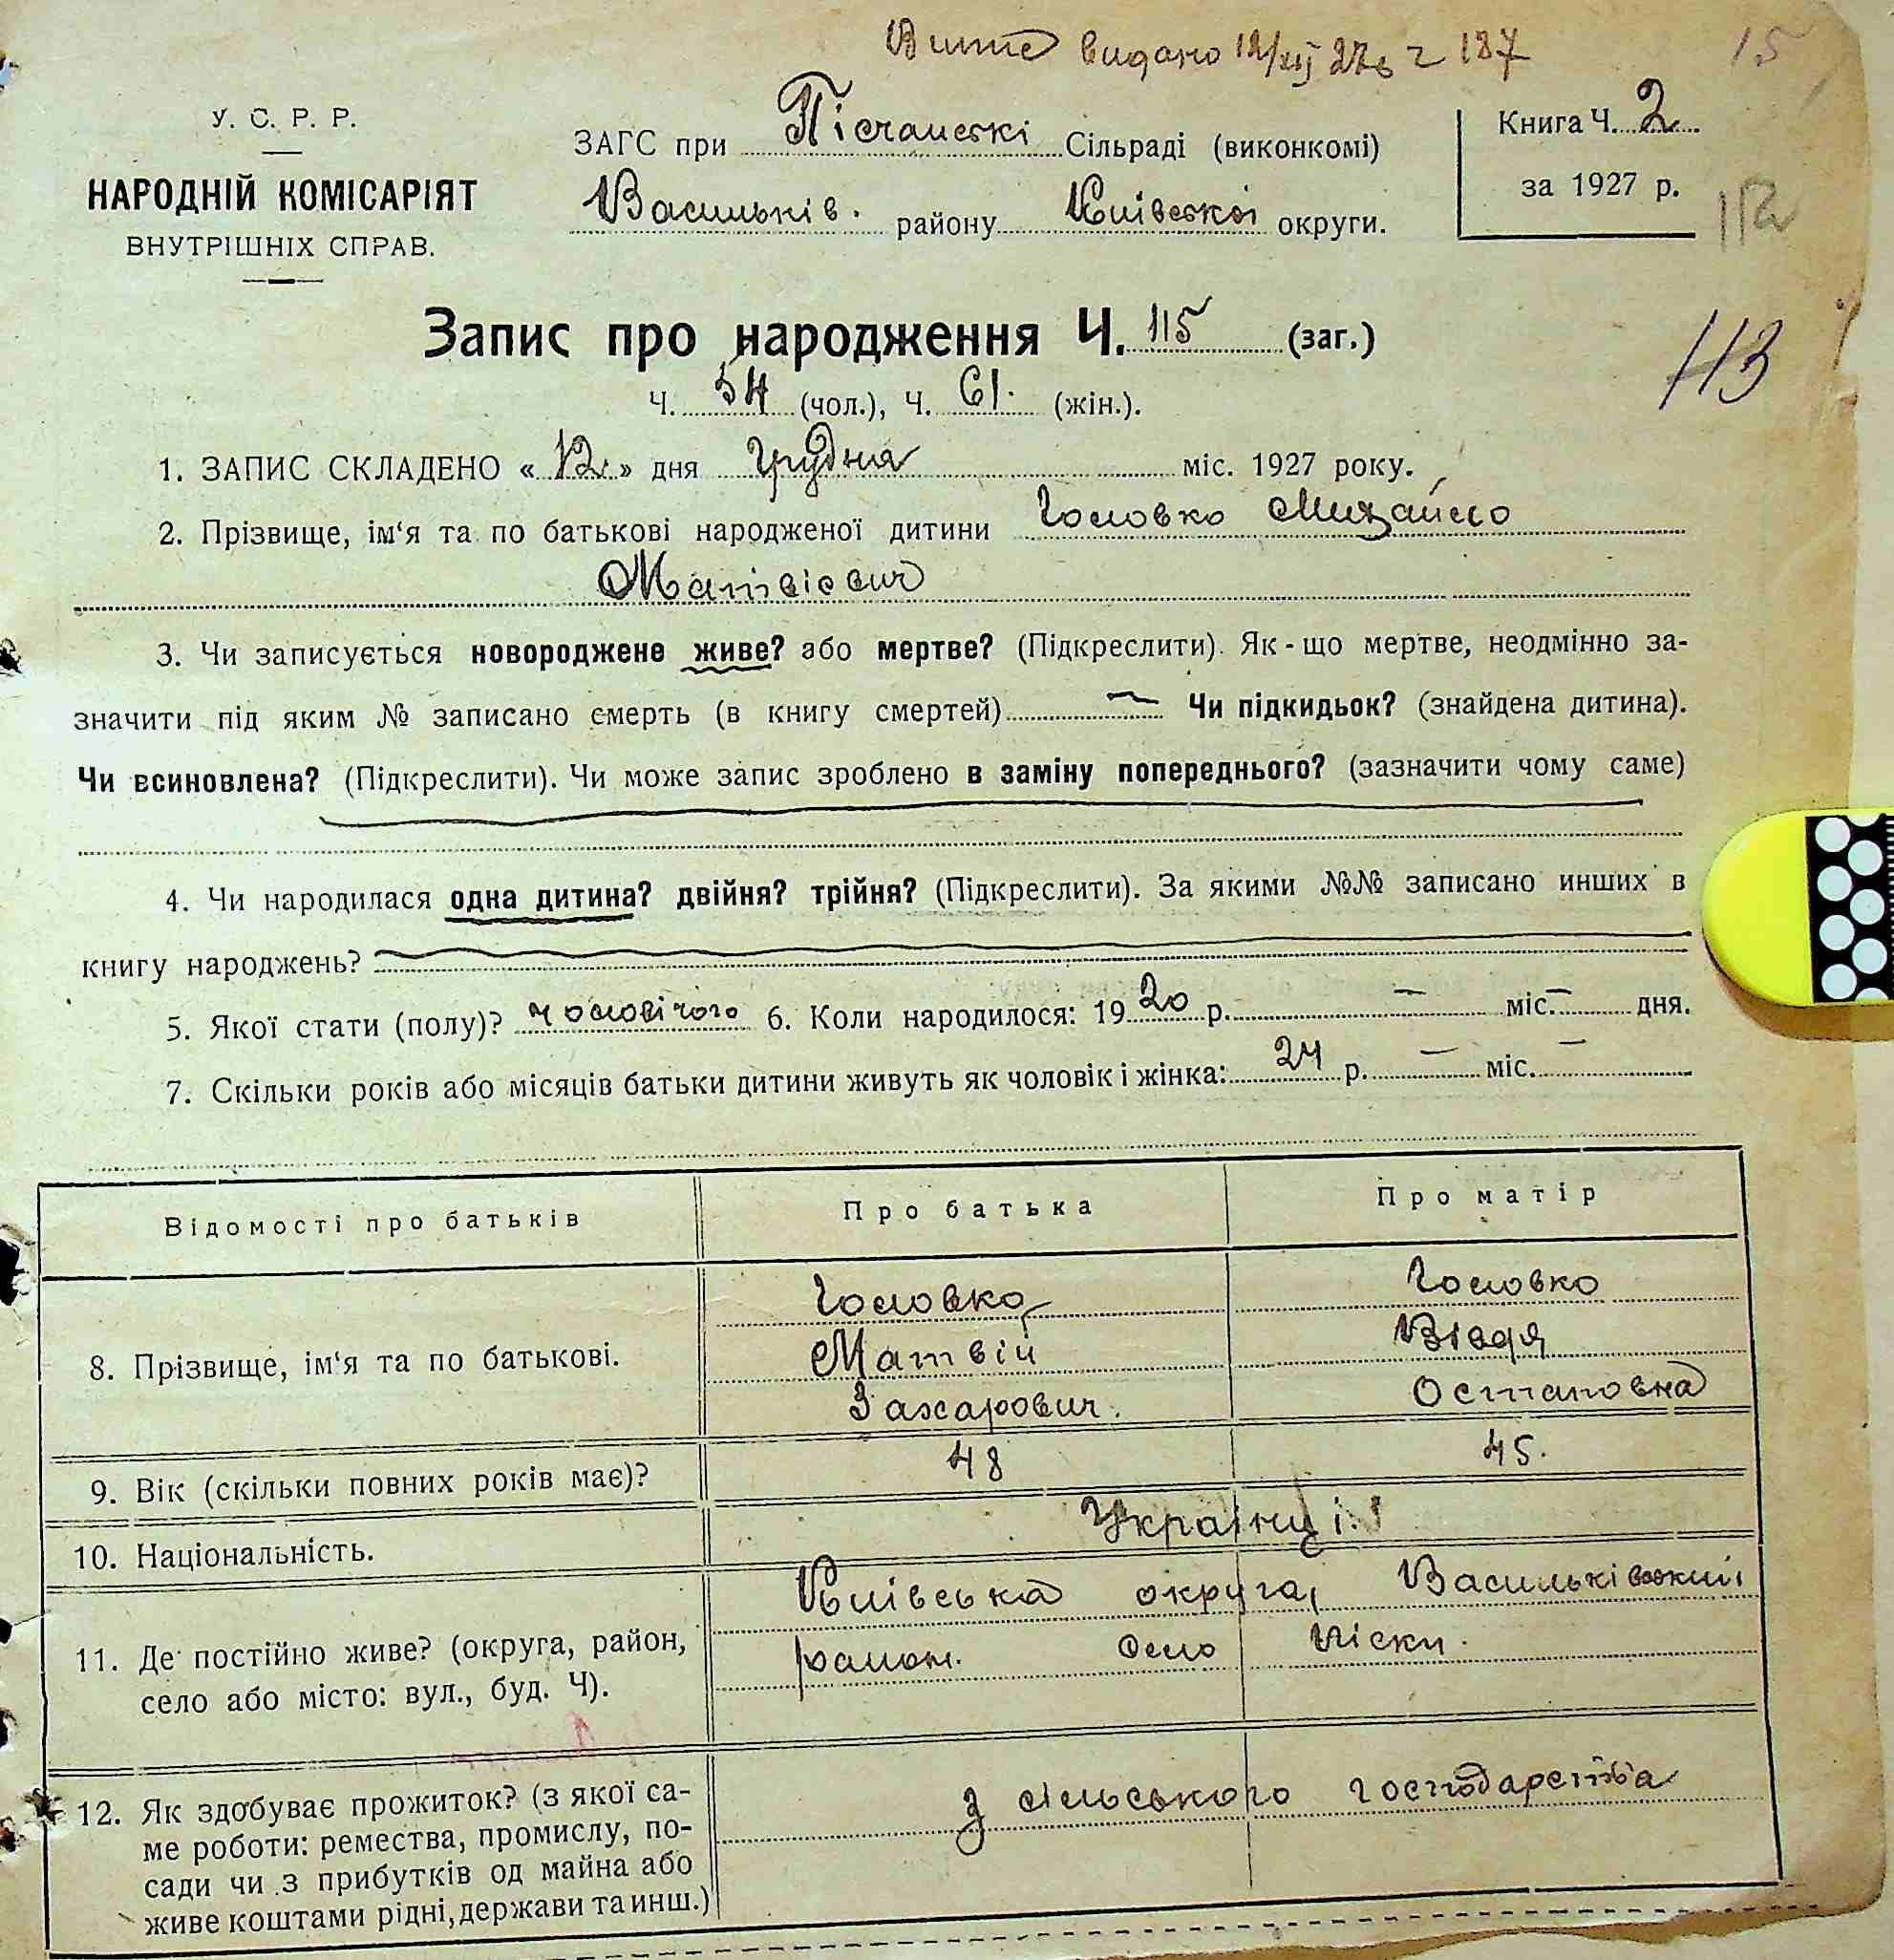 видано 12/XII 27 ч 187
15
У. С. Р. Р.
НАРОДНІЙ КОМІСАРІЯТ
ВНУТРІШНІХ СПРАВ.
ЗАГС при Пісчанські Сільраді (виконкомі)
Васильків. району Київської округи.
Книга Ч. 2
за 1927 р.
112
Запис про народження Ч. 115 (заг.)
113
Ч. 54 (чол.), Ч. 61. (жін.).
1. ЗАПИС СКЛАДЕНО «12» дня Грудня міс. 1927 року.
2. Прізвище, ім‘я та по батькові народженої дитини Головко Михайло
Матвієвич
3. Чи записується новороджене живе? або мертве? (Підкреслити). Як-що мертве, неодмінно за-
значити під яким № записано смерть (в книгу смертей) — Чи підкидьок? (знайдена дитина).
Чи всиновлена? (Підкреслити). Чи може запис зроблено в заміну попереднього? (зазначити чому саме)
4. Чи народилася одна дитина? двійня? трійня? (Підкреслити). За якими №№ записано инших в
книгу народжень?
5. Якої стати (полу)? чоловічого 6. Коли народилося: 1920 р. — міс. — дня.
7. Скільки років або місяців батьки дитини живуть як чоловік і жінка: 24 р. — міс. —
Відомості про батьків Про батька Про матір
8. Прізвище, ім‘я та по батькові.
Головко
Матвій
Захарович.
Головко
Остаповна
9. Вік (скільки повних років має)? 48 45.
10. Національність. Українці.
11. Де постійно живе? (округа, район,
село або місто: вул., буд. Ч).
Київська округа, Васильківський
район. село Піски.
12. Як здобуває прожиток? (з якої са-
ме роботи: ремества, промислу, по-
сади чи з прибутків од майна або
живе коштами рідні, держави та инш.)
з сільського господарства